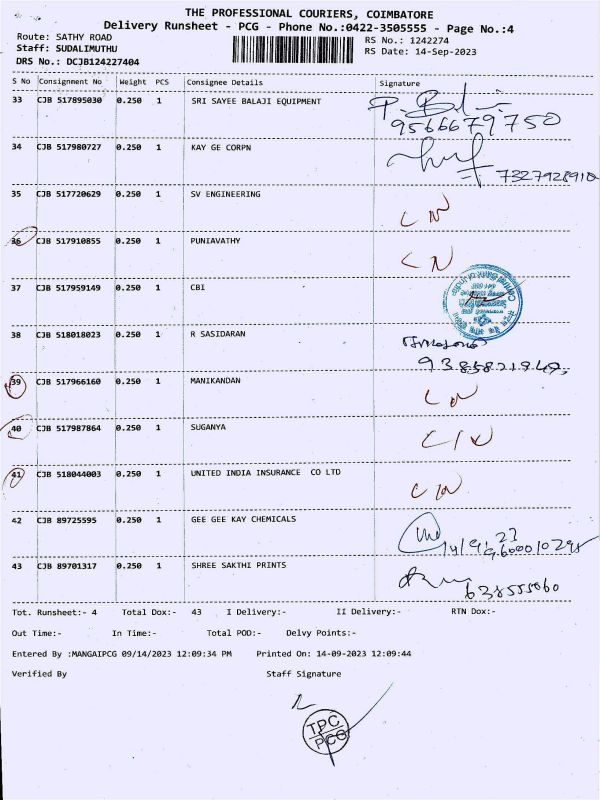 THE PROFESSIONAL COURIERS, COIMBATORE
Delivery Runsheet - PCG - Phone No.:0422-3505555 - Page No.:4
Route: SATHY ROAD RS No.: 1242274
Staff: SUDALIMUTHU RS Date: 14-Sep-2023
DRS No.: DCJB124227404
S No Consignment No Weight PCS Consignee Details Signature
33 CJB 517895030 0.250 1 SRI SAYEE BALAJI EQUIPMENT
9566679750
34 CJB 517980727 0.250 1 KAY GE CORPN
7327928910
35 CJB 517720629 0.250 1 SV ENGINEERING
CN
36 CJB 517910855 0.250 1 PUNIAVATHY
CN
37 CJB 517959149 0.250 1 CBI
38 CJB 518018023 0.250 1 R SASIDARAN
39 CJB 517966160 0.250 1 MANIKANDAN
CN
40 CJB 517987864 0.250 1 SUGANYA
41 CJB 518044003 0.250 1 UNITED INDIA INSURANCE CO LTD
CN
42 CJB 89725595 0.250 1 GEE GEE KAY CHEMICALS
14/9/23
43 CJB 89701317 0.250 1 SHREE SAKTHI PRINTS
Tot. Runsheet:- 4 Total Dox:- 43 I Delivery:- II Delivery:- RTN Dox:-
Out Time:- In Time:- Total POD:- Delvy Points:-
Entered By :MANGAIPCG 09/14/2023 12:09:34 PM Printed On: 14-09-2023 12:09:44
Verified By Staff Signature
TPC
PCG